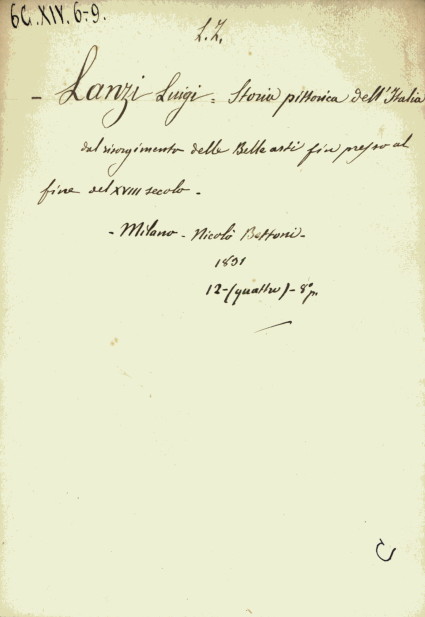 6C.XIV.6-9.
L.Z.
- Lanzi Luigi = Storia pittorica dell'Italia
dal risorgimento delle Belle arti fin presso al
fine del XVIII secolo -
- Milano - Nicolò Bettoni -
1831
12 - (quattro) - 8° p.
C